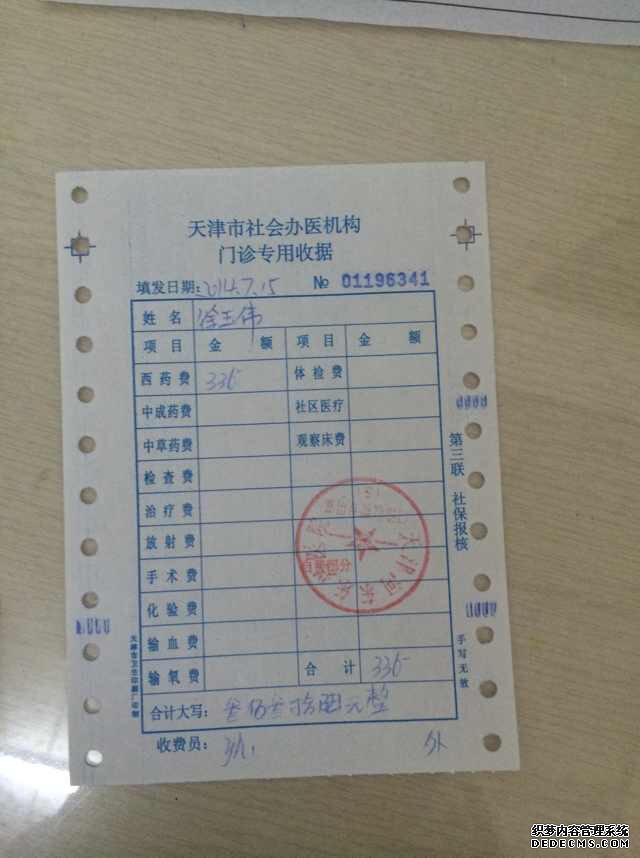 天津市社会办医机构
门诊专用收据
填发日期: 2014.7.15 № 01196341
姓 名 徐玉伟
项 目 金 额 项 目 金 额
西药费 336 体检费
中成药费 社区医疗
中草药费 观察床费
检查费
治疗费
放射费
手术费
化验费
输血费
输氧费 合 计 336
合计大写: 叁佰叁拾 元整
收费员:
第三联 社保报核
手写无效
织梦内容管理系统
DEDECMS.COM